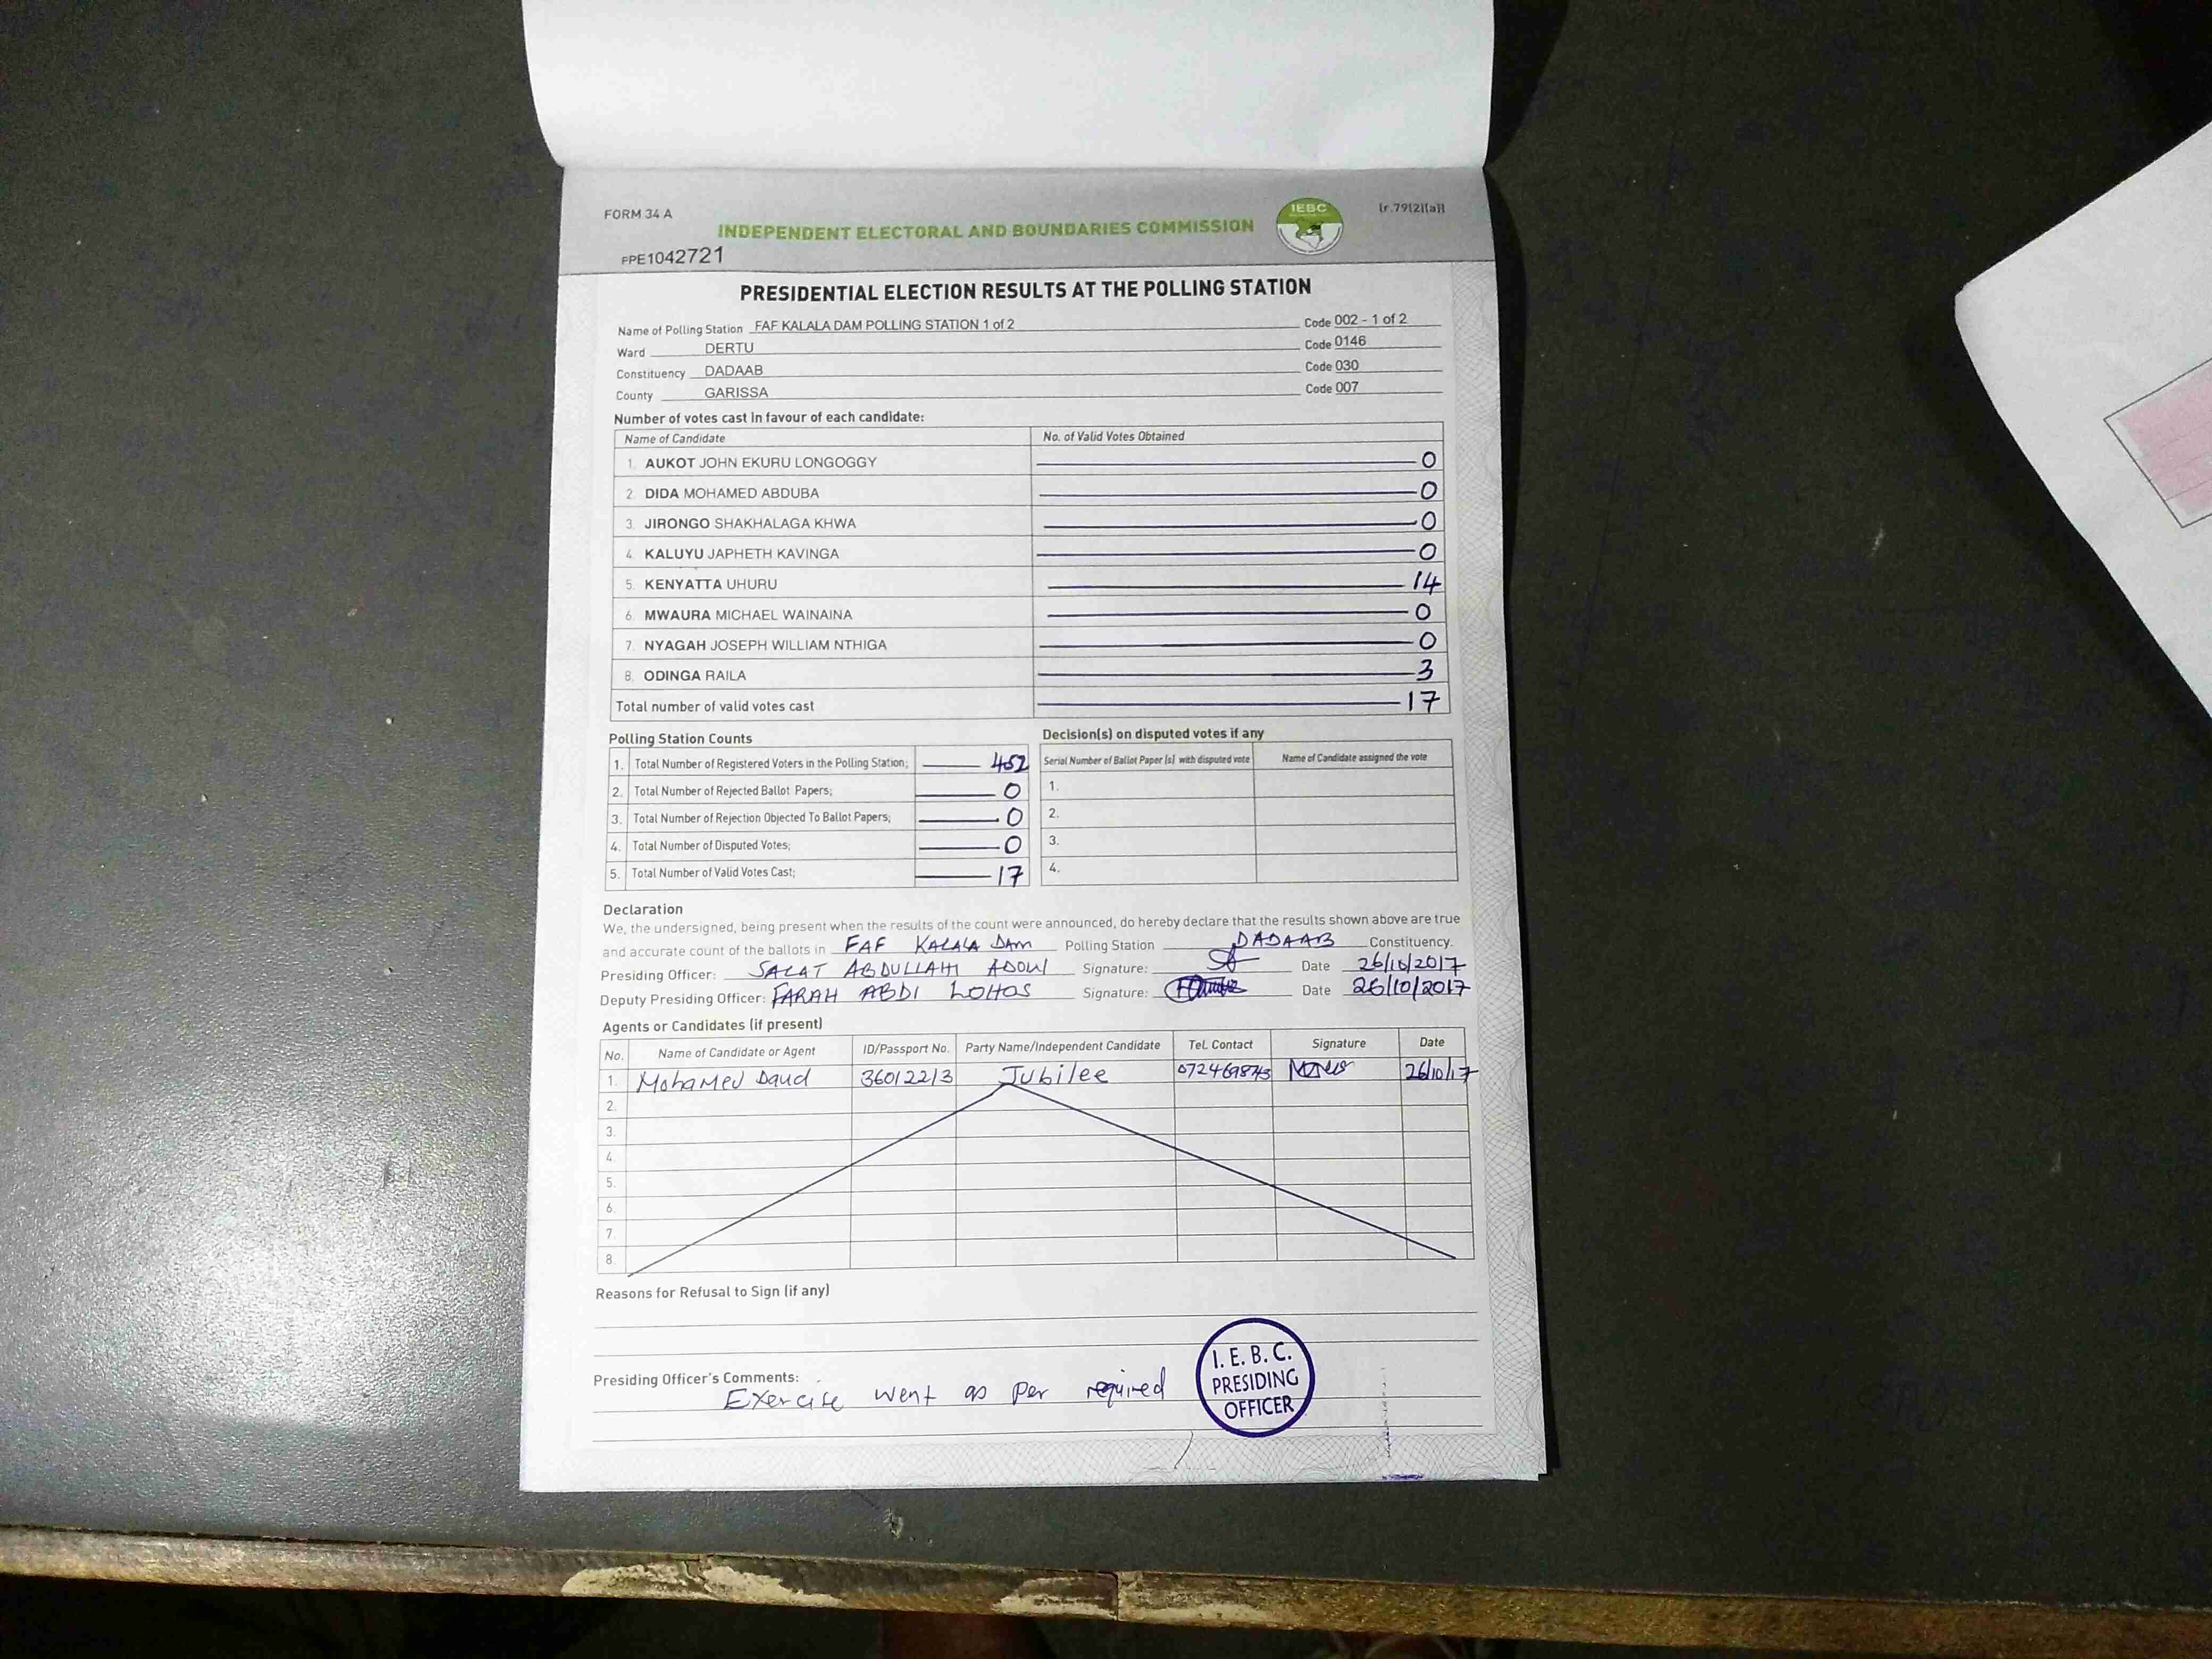 FORM 34 A
[r.79(2)(a)]
INDEPENDENT ELECTORAL AND BOUNDARIES COMMISSION
IEBC
PPE1042721
PRESIDENTIAL ELECTION RESULTS AT THE POLLING STATION
Name of Polling Station FAF KALALA DAM POLLING STATION 1 of 2 Code 002 - 1 of 2
Ward DERTU Code 0146
Constituency DADAAB Code 030
County GARISSA Code 007
Number of votes cast in favour of each candidate:
Name of Candidate No. of Valid Votes Obtained
1. AUKOT JOHN EKURU LONGOGGY 0
2. DIDA MOHAMED ABDUBA 0
3. JIRONGO SHAKHALAGA KHWA 0
4. KALUYU JAPHETH KAVINGA 0
5. KENYATTA UHURU 14
6. MWAURA MICHAEL WAINAINA 0
7. NYAGAH JOSEPH WILLIAM NTHIGA 0
8. ODINGA RAILA 3
Total number of valid votes cast 17
Polling Station Counts
1. Total Number of Registered Voters in the Polling Station; 452
2. Total Number of Rejected Ballot Papers; 0
3. Total Number of Rejection Objected To Ballot Papers; 0
4. Total Number of Disputed Votes; 0
5. Total Number of Valid Votes Cast; 17
Decision(s) on disputed votes if any
Serial Number of Ballot Paper (s) with disputed vote Name of Candidate assigned the vote
1.
2.
3.
4.
Declaration
We, the undersigned, being present when the results of the count were announced, do hereby declare that the results shown above are true
and accurate count of the ballots in FAF KALALA DAM Polling Station DADAAB Constituency.
Presiding Officer: SALAT ABDULLAHI Signature: Date 26/10/2017
Deputy Presiding Officer: FARAH ABDI LOHOS Signature: Date 26/10/2017
Agents or Candidates (if present)
No. Name of Candidate or Agent ID/Passport No. Party Name/Independent Candidate Tel. Contact Signature Date
1. Mohamed Daud 36012213 Jubilee 26/10/17
2.
3.
4.
5.
6.
7.
8.
Reasons for Refusal to Sign (if any)
Presiding Officer's Comments:
Exercise went as per required
I. E. B. C.
PRESIDING
OFFICER